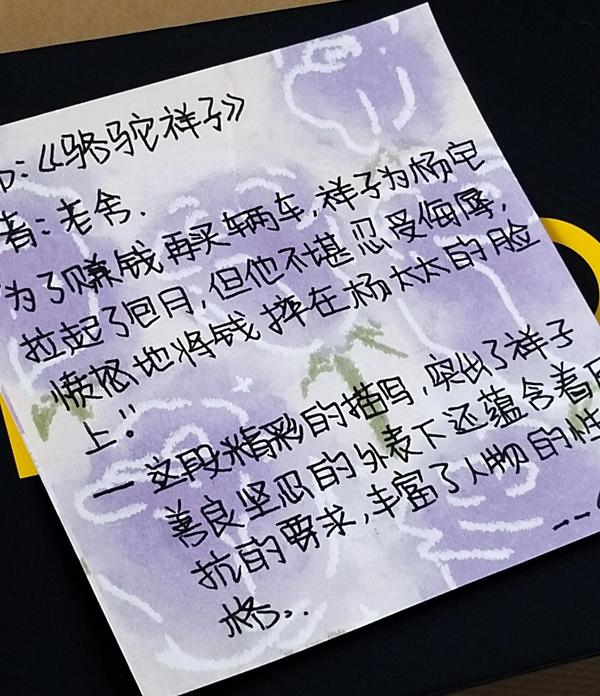 ：《骆驼祥子》
者：老舍.
为了赚钱再买辆车,祥子为杨宅
拉起了包月,但他不堪忍受侮辱,
愤怒地将钱摔在杨太太的脸
上!!
—这段精彩的描写,突出了祥子
善良坚忍的外表下还蕴含着
抗的要求,丰富了人物的性
格。.